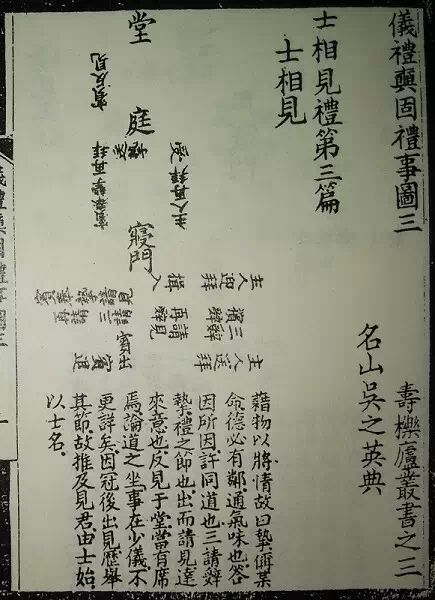 儀禮奭固禮事圖三
壽櫟廬叢書之三
名山吳之英典
士相見禮第三篇
士相見
堂
庭
寢門
賓反見
主人再拜受
賓奉摯再拜
送摯
主人迎拜揖入
擯三辭再請辭見
主人送拜
賓出
賓退
藉物以將情故曰摯俯某
命德必有鄰通氣味也答
因所因許同道也三請辭
摯禮之節也出而請見達
來意也反見于堂當有席
焉論道之坐事在少儀不
更詳矣因冠後出見歷舉
其節故推及見君由士始
以士名
儀禮奭固禮事圖三